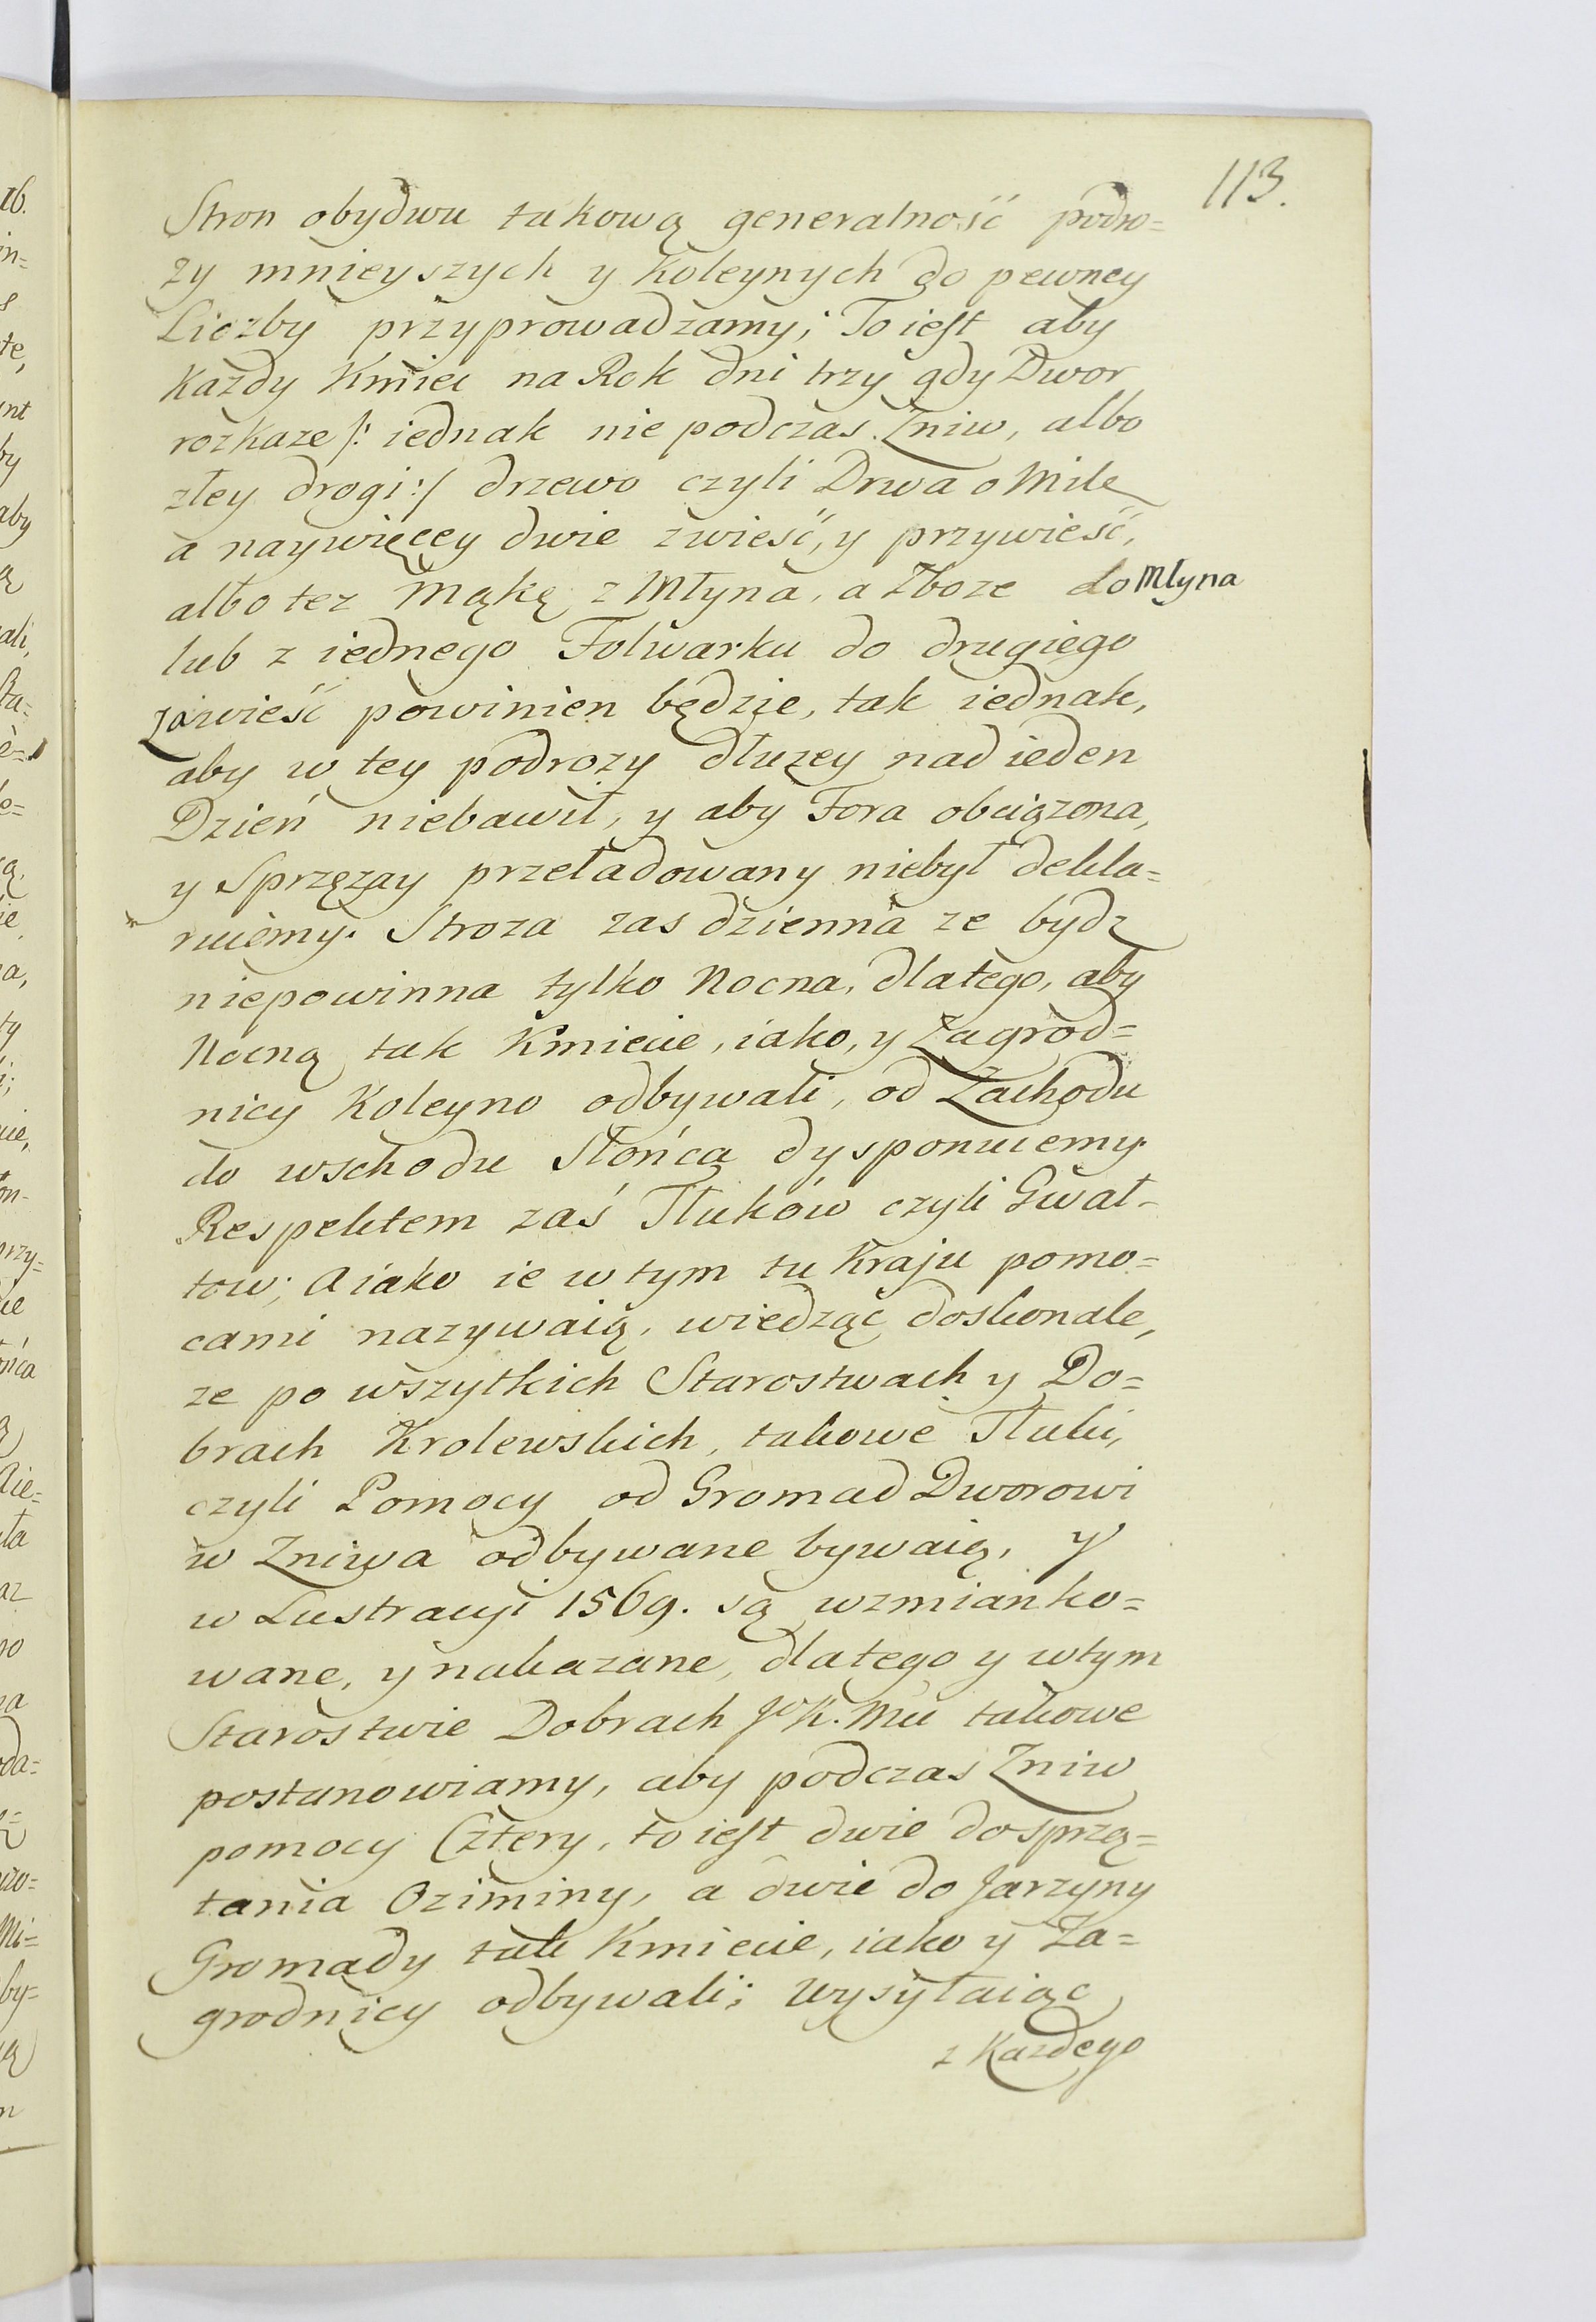 113.
Stron obydwu takową generalność podro=
ży mnieyszych y Koleynych do pewney
Liczby przyprowadzamy; To iest aby
Każdy Kmiec na Rok dni trzy gdy Dwor
rozkaze /: iednak nie podczas Zniw, albo
złey drogi :/ drzewo czyli Drwa o Mile
a naywięcey dwie zwieść, y przywieść,
albo tez Mąkę z Młyna, a Zboze do Młyna
lub z iednego Folwarku do drugiego
zawieść powinien będzie, tak iednak,
aby w tey podrozy dłuzey nad ieden
Dzień niebawił, y aby Fora obciązona,
y Sprzęzay przeładowany niebył dekla=
ruiemy. Stroza zas dzienna ze bydz
niepowinna tylko Nocna, dlatego, aby
Nocną tak Kmiecie, iako, y Zagrod=
nicy Koleyno odbywali, od Zachodu
do wschodu Słońca dysponuiemy.
Respektem zaś Tłuków czyli Gwał-
tow; A iako ie w tym tu Kraju pomo=
cami nazywaią, wiedząc doskonale,
ze po wszytkich Starostwach y Do=
brach Krolewskich, takowe Tłuki,
czyli Pomocy od Gromad Dworowi
w Zniwa odbywane bywaią, y
w Lustracyi 1569. są wzmianko=
wane, y nakazane, dlatego y wtym
Starostwie Dobrach JoK. Mci takowe
postanowiamy, aby podczas Zniw
pomocy Cztery, to iest dwie do sprzą=
tania Oziminy, a dwie do Jarzyny
Gromady tak Kmiecie, iako y Za=
grodnicy odbywali; wysyłaiąc
z Kazdego